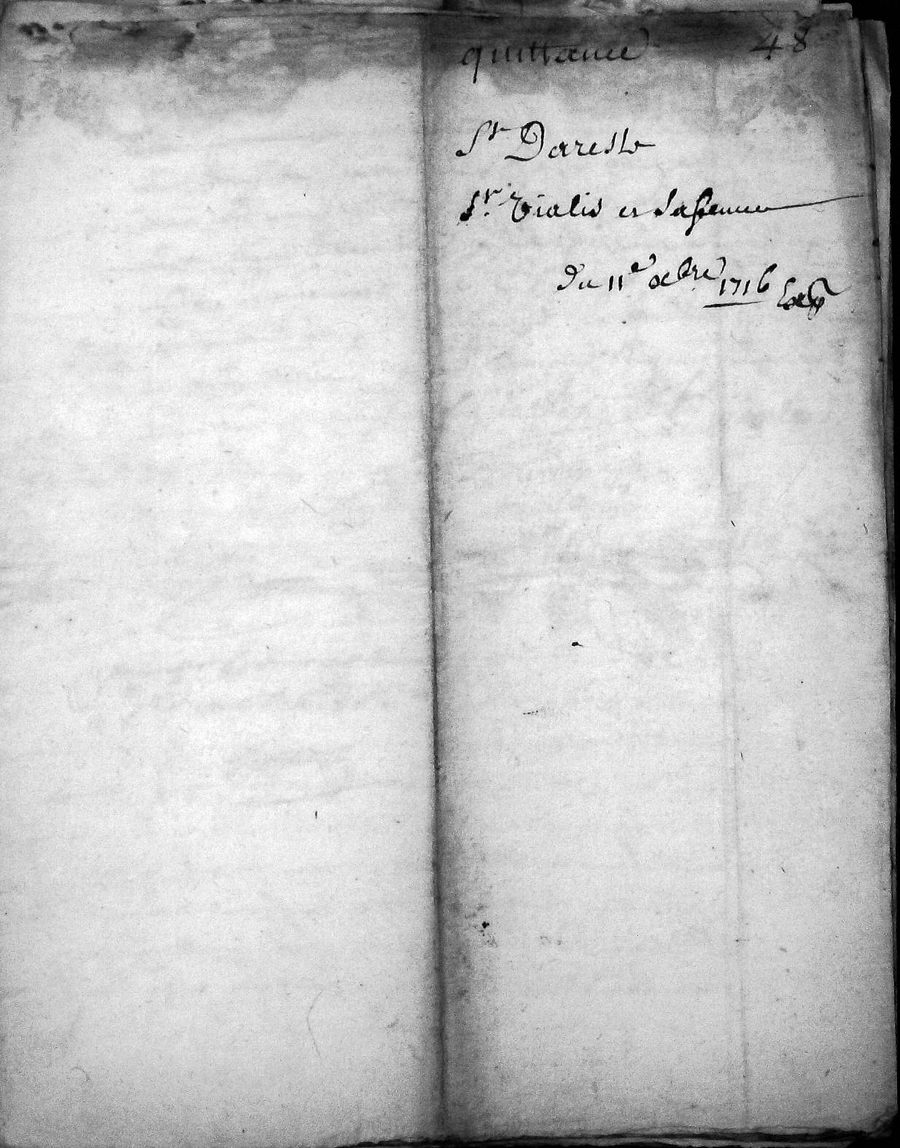 quittance 48
Sr Dareste
Sr Vialis et sa femme
du 11e 8bre 1716